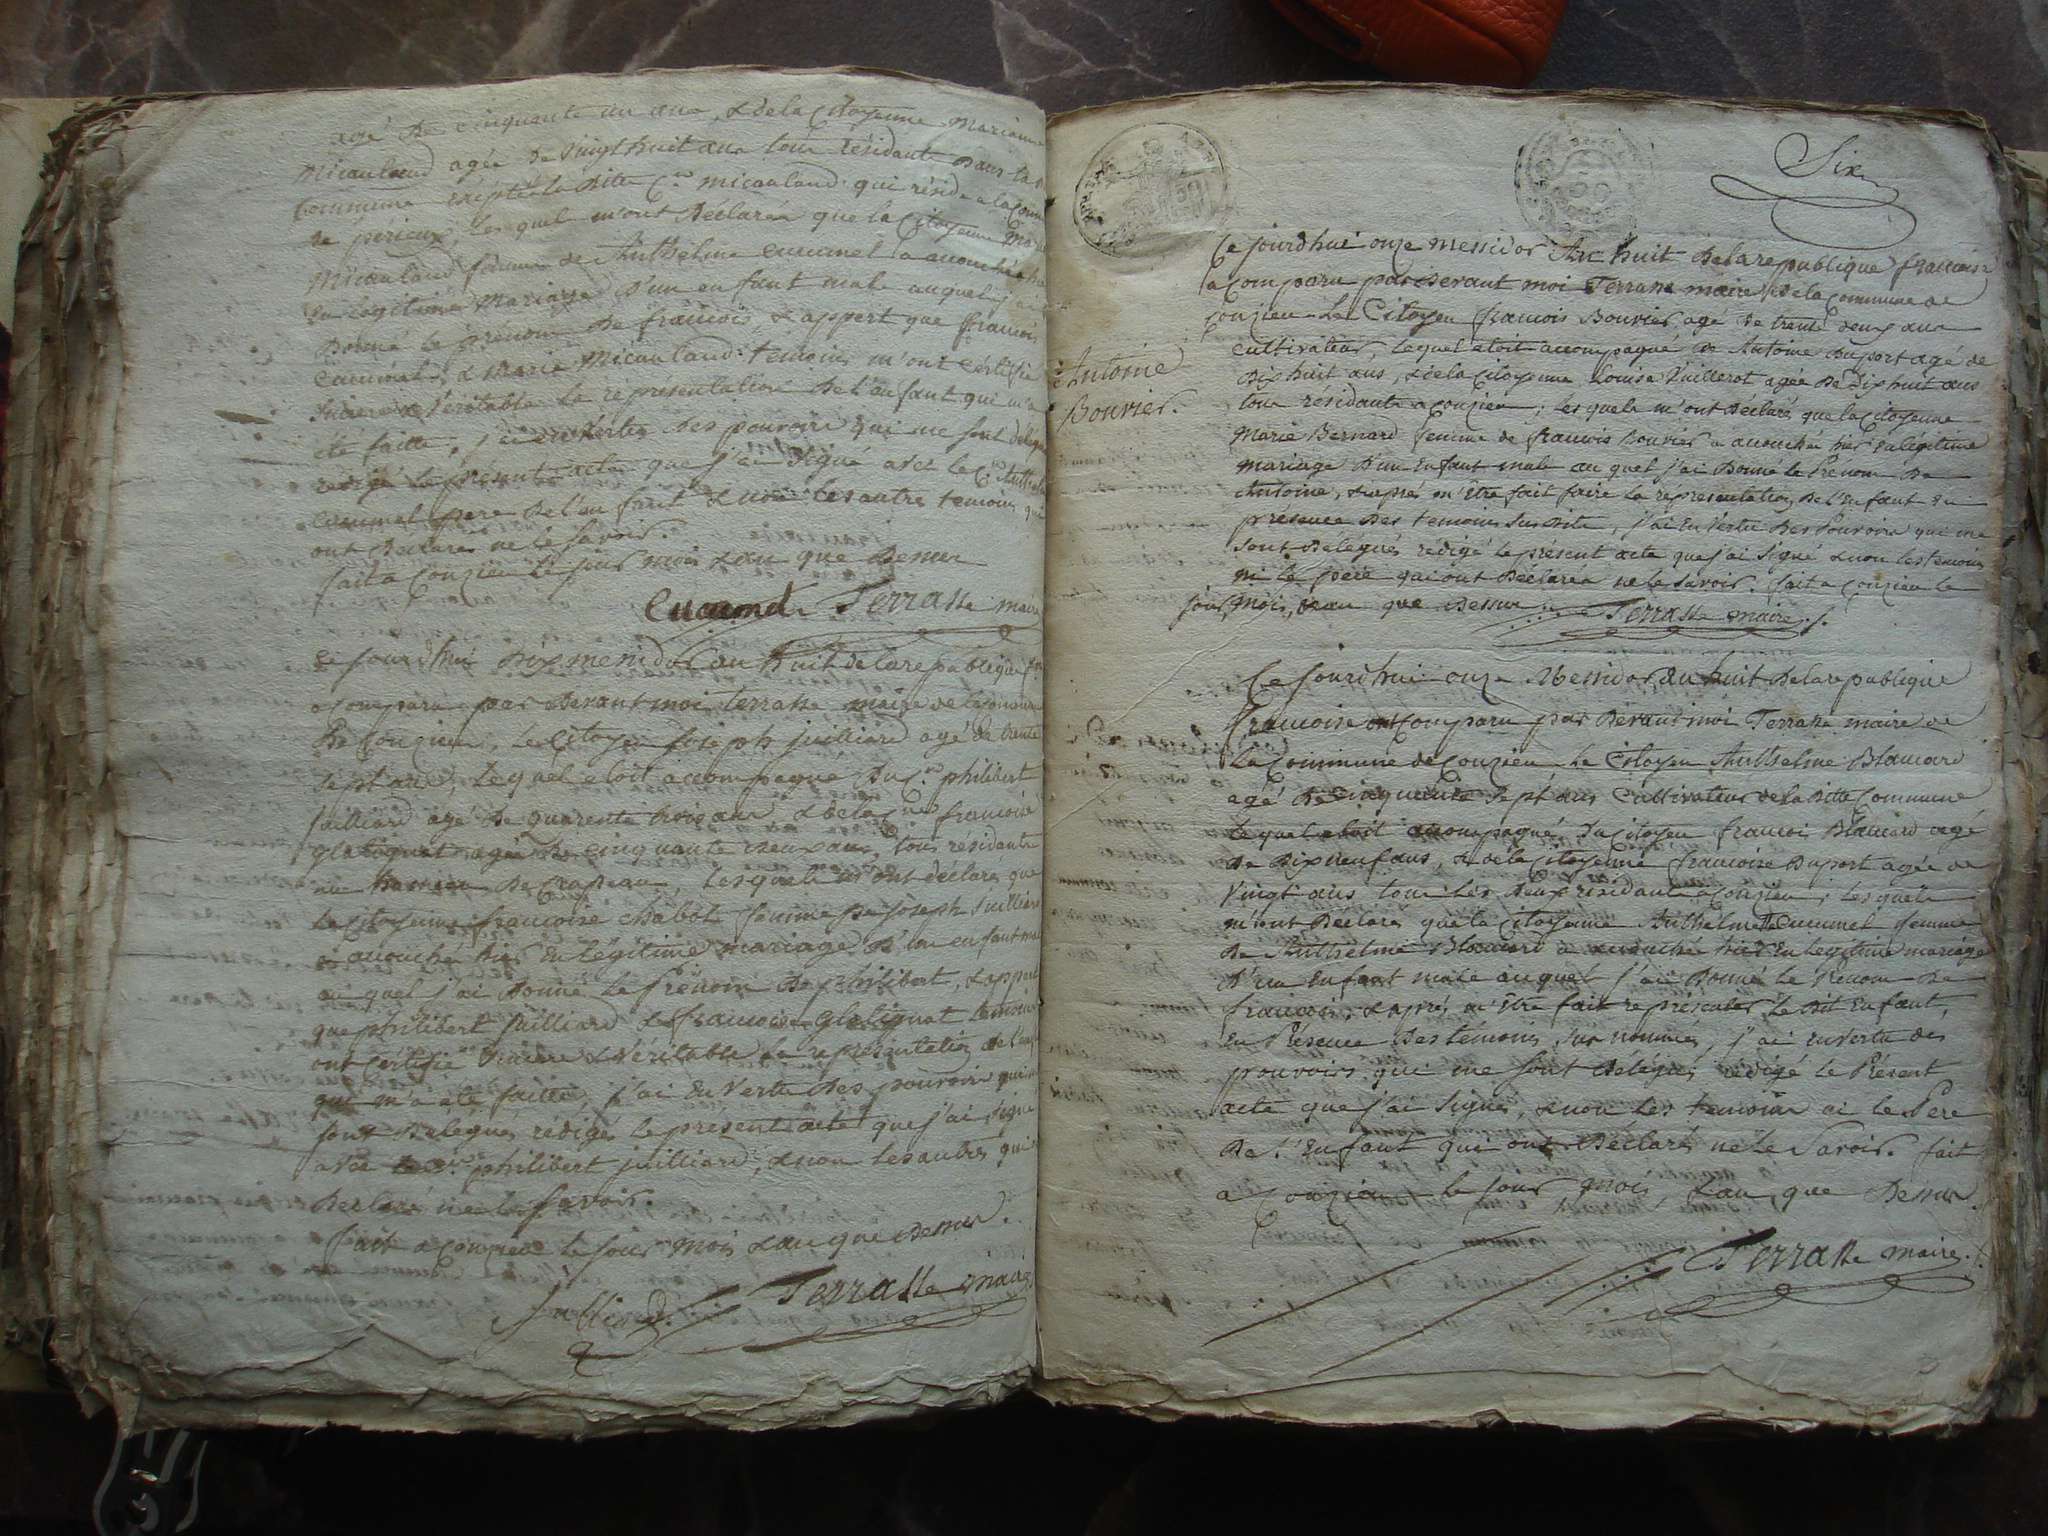 agé de cinquante un ans, & de la Citoyenne Marianne
Micauland agée de vingt huit ans tous résidants dans la d.
Commune excepté la ditte C.ne micauland qui réside a la Comm
de perieux, les quels m'ont Déclarés que la Citoyenne Marie
Micauland femme de Anthelme cucumel a accouchée hier
En légitime Mariage d'un enfant male auquel j'ai
Donné le prénom de francois, & appert que francois
Cucumel, & Marie Micauland temoins m'ont Certifié
Sincere & Veritable la representation de l'enfant qui m'a
été faitte, j'ai En vertu des pouvoirs qui me sont délegués
redigé le présent acte que j'ai signé avec le C.en Anthelme
Cucumel pere de l'enfant & non les autres temoins qui
ont Déclarés ne le savoir.
fait a Conzieu le jour mois & an que Dessus
Cucumel Terrasse maire
Ce jourd'hui Dix messidor an huit de la republique fr
a Comparu par Devant moi Terrasse maire de la Commune
De Conzieu, Le Citoyen Joseph juilliard agé de trente
sept ans, lequel etoit accompagné du C.en philibert
juilliard agé de quarente trois ans, & de la C.ne francoise
glatignat agée de cinquante deux ans, tous résidants
au hameau de Crapeau, lesquels m'ont déclarés que
la citoyenne francoise chabot femme de joseph Juilliard
a accouché hier En légitime mariage d'un enfant male
au quel j'ai Donné le Prénom De philibert, & appert
que philibert juilliard & francoise glatignat temoins
ont Certifié Sincere & Véritable la représentation de l'enfant
qui m'a été faitte, j'ai En vertu des pouvoirs qui me
sont Délégués rédigés le présent acte que j'ai signé
avec le C.en philibert juilliard, & non les autres qui ont
Declaré ne le savoir.
fait a Conzieu le jour mois & an que Dessus.
Juilliard Terrasse maire
Six
Ce jourd'hui onze Messidor An huit De la republique francoise
a comparu par Devant moi Terrasse maire De la Commune de
Conzieu Le Citoyen francois Bouvier agé de trente deux ans
cultivateur, lequel etoit accompagné de Antoine Duport agé de
Dix huit ans, & de la Citoyenne Louise Vuillerot agée de Dix huit ans
tous residants a Conzieu, lesquels m'ont Déclaré que la Citoyenne
Marie Bernard femme de francois Bouvier a accouché hier En légitime
mariage d'un Enfant male au quel j'ai Donné le Prénom De
Antoine, & après m'être fait faire la representation de l'Enfant En
présence des temoins Sus Dits, j'ai En vertu des Pouvoirs qui me
sont Délegués rédigé le présent acte que j'ai signé & non les temoins
ni le pere qui ont Déclarés ne le savoir. fait a Conzieu le
jour, mois, & an que Dessus Terrasse maire.
Antoine
Bouvier.
Ce jourd'hui onze Messidor, an huit De la republique
francoise ont Comparu par Devant moi Terrasse maire de
La Commune de Conzieu Le Citoyen Anthelme Blancard
agé de cinquante sept ans Cultivateur de la Ditte Commune
le quel etoit accompagné du Citoyen francois Blancard agé
de Dix neuf ans, & de la Citoyenne francoise Duport agée de
Vingt ans tous Les deux résidants a Conzieu, les quels
m'ont Déclaré que la Citoyenne Anthelmette Cucumel femme
De Anthelme Blancard a accouchée hier En Legitime mariage
D'un Enfant male au quel j'ai Donné le Prénom De
francois, & après m'être fait représenter Le Dit Enfant,
En Présence Des temoins Sus nommés, j'ai En vertu des
pouvoirs qui me sont Délégués rédigé Le Présent
acte que j'ai signé, & non les temoins ni le Père
De l'Enfant qui ont Déclaré ne le Savoir. fait
a Conzieu le jour, mois, & an que Dessus.
Terrasse maire.